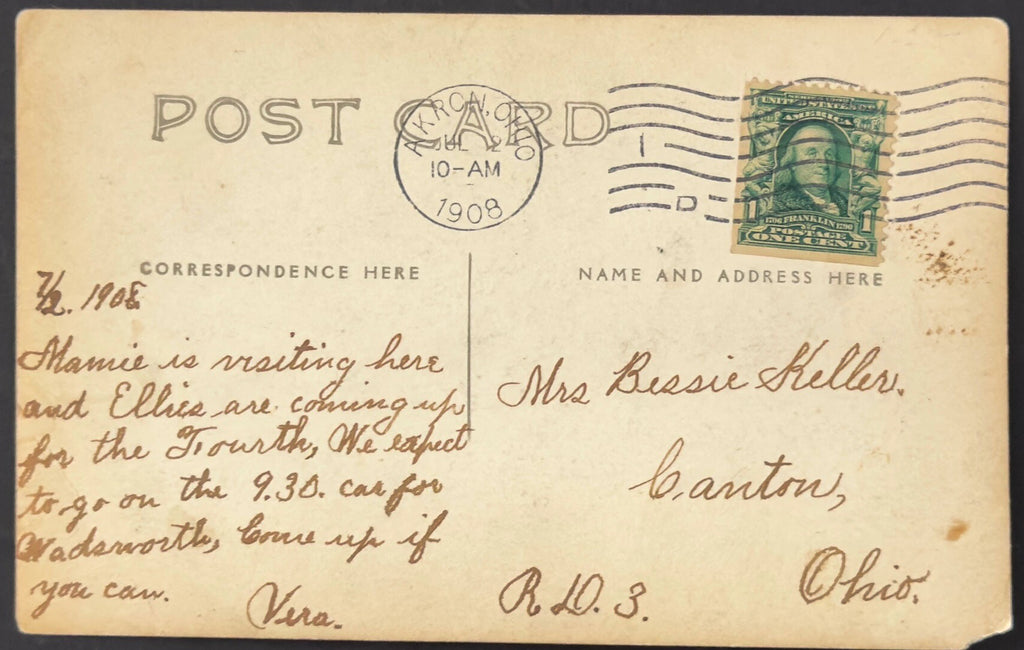 POST CARD
AKRON, OHIO
JUL 2
10-AM
1908
1
D
UNITED STATES OF
AMERICA
1706 FRANKLIN 1790
1 1
POSTAGE
ONE CENT
CORRESPONDENCE HERE
NAME AND ADDRESS HERE
7/2. 1908
Mamie is visiting here
and Ellies are coming up
for the Fourth, We expect
to go on the 9.30. car for
Wadsworth, Come up if
you can.
Vera.
Mrs Bessie Keller.
Canton,
Ohio.
R.D. 3.